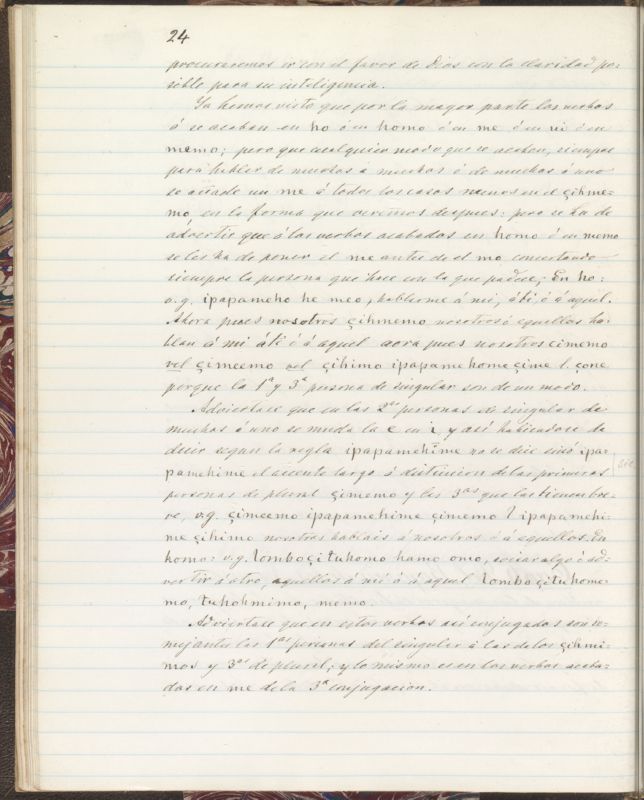 24
procuraremos ir con el favor de Dios con la claridad po=
sible para su inteligencia.
Ya hemos visto que por la mayor parte los verbos
ó se acaban en ho ó en homo ó en me ó en vi ó en
memo; pero que cualquier modo que se acaben, siempre
para hablar de muchos á muchos ó de muchos á uno
se añade un me á todos los casos menos en el çihme=
mo, en la forma que veremos despues: pero se ha de
advertir que á los verbos acabados en homo ó en memo
se les ha de poner el me antes de el mo concertando
siempre la persona que hace con la que padece; En ho:
v.g. ipapameho he meo, hablarme á mí, á tí, ó á aquel.
Ahora pues nosotros çihmemo nosotros ó aquellos ha=
blan á mí á tí ó á aquel aora pues nosotros cimemo
vel çimeemo vel çihimo ipapamehome çime l. çone
porque la 1ª y 3ª persona de singular son de un modo.
Adviertase que en las 2as personas de singular de
muchos á uno se muda la e en i, y así habiendose de
decir segun la regla ipapamehime no se dice sinó ipa=
pamehime el acento largo á distincion de las primeras
personas de plural çimemo y las 3as que las tienen bre=
ve, v.g. çimeemo ipapamehime çimemo l ipapamehi=
me çihimo nosotros hablais á nosotros ó á aquellos. En
homo: v.g. lomboçituhomo hamo omo, avisar algo ó ad=
vertir á otro, aquellos á mí ó á aquel lomboçituhome=
mo, tuhohmimo, memo.
Adviertase que en estos verbos así conjugados son se=
mejantes las 1as personas del singular á las de los çihmi=
mos y 3as de plural; y lo mismo es en los verbos acaba=
dos en me de la 3ª conjugacion.